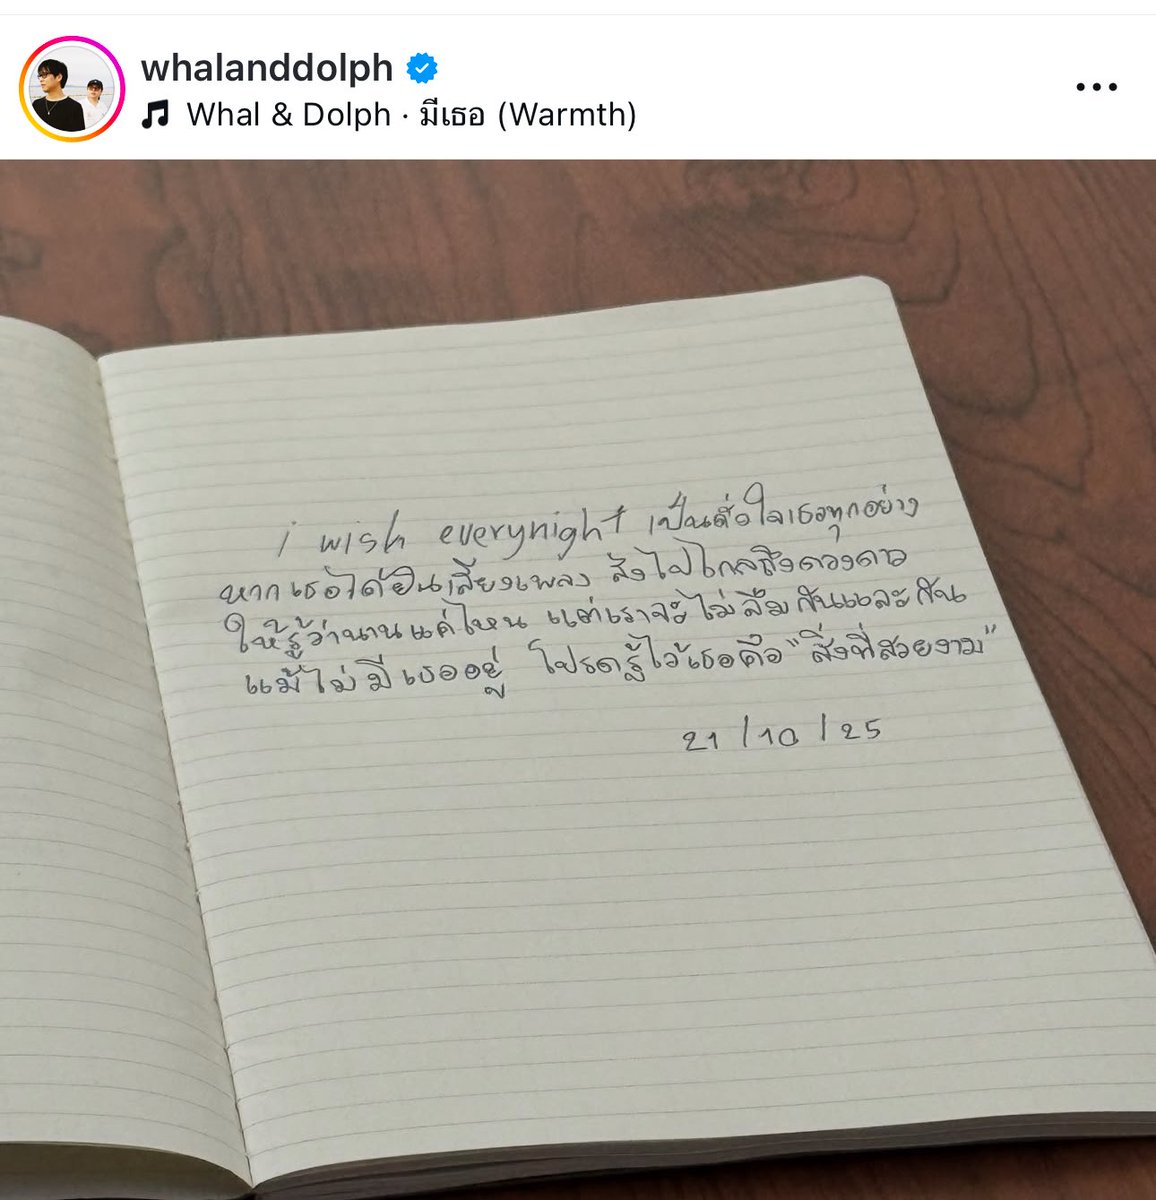 whalanddolph
Whal & Dolph · มีเธอ (Warmth)
i wish everynight เป็นดั่งใจเธอทุกอย่าง
หากเธอได้ยินเสียงเพลง ส่งไปไกลถึงดวงดาว
ให้รู้ว่านานแค่ไหน แต่เราจะไม่ลืมกันและกัน
แม้ไม่มีเธออยู่ โปรดรู้ไว้เธอคือ "สิ่งที่สวยงาม"
21/10/25